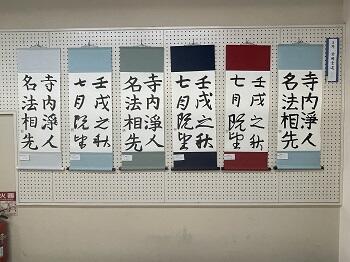 寺内淨人
名法相先
壬戌之秋
七月既望
壬戌之秋
七月既望
寺内淨人
名法相先
壬戌之秋
七月既望
寺内淨人
名法相先
火器